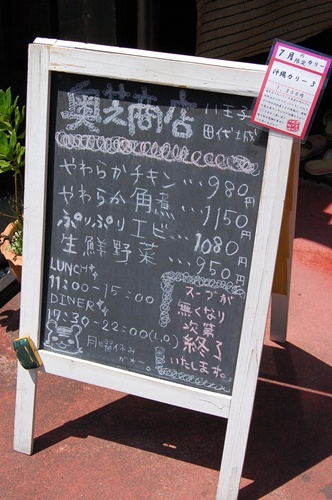 奥芝商店
八王子
田代城
やわらかチキン・・・980円
やわらか角煮・・・1150円
ぷりぷりエビ・・・1080円
生鮮野菜・・・950円
LUNCH
11:00-15:00
DINER
17:30-22:00(L.O.)
月曜休み
スープが
無くなり
次第
終了
いたします。
7月の
限定カリー
沖縄カリー3